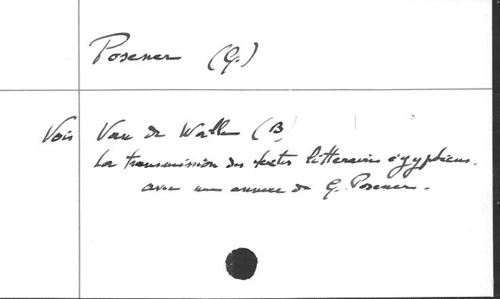 Posener (G.)
Vois Van de Walle (B)
La transmission des textes littéraires égyptiens.
avec une annexe de G. Posener.